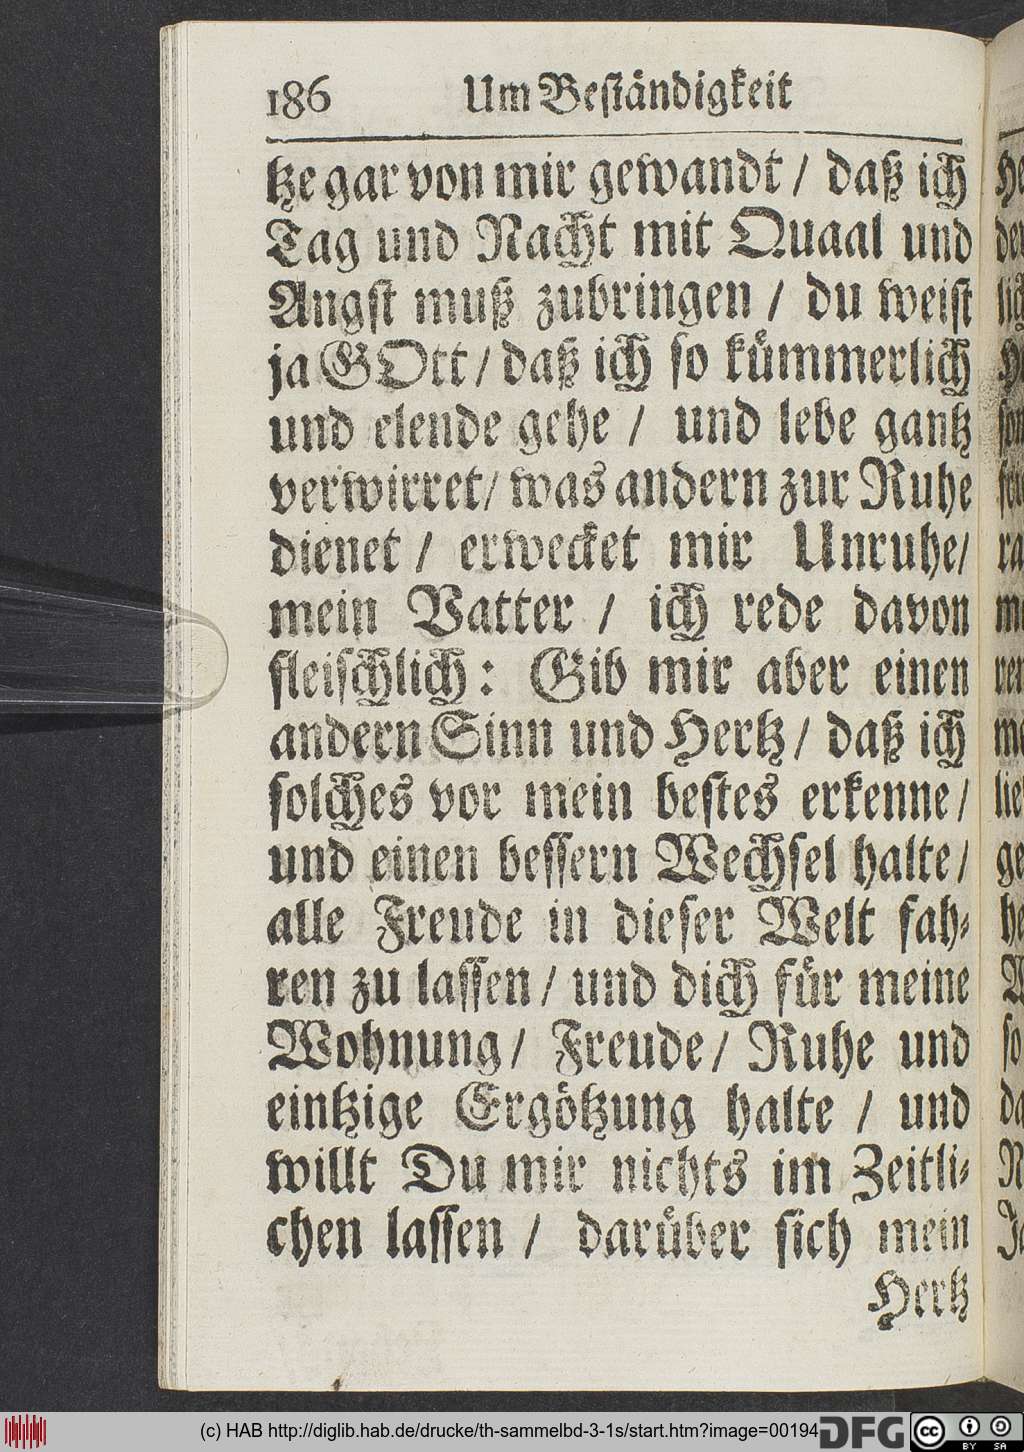 186 Um Beständigkeit
tze gar von mir gewandt / daß ich
Tag und Nacht mit Quaal und
Angst muß zubringen / du weist
ja GOtt / daß ich so kümmerlich
und elende gehe / und lebe gantz
verwirret / was andern zur Ruhe
dienet / erwecket mir Unruhe /
mein Vatter / ich rede davon
fleischlich: Gib mir aber einen
andern Sinn und Hertz / daß ich
solches vor mein bestes erkenne /
und einen bessern Wechsel halte /
alle Freude in dieser Welt fah-
ren zu lassen / und dich für meine
Wohnung / Freude / Ruhe und
eintzige Ergötzung halte / und
willt Du mir nichts im Zeitli-
chen lassen / darüber sich mein
Hertz
(c) HAB http://diglib.hab.de/drucke/th-sammelbd-3-1s/start.htm?image=00194
DFG
cc
BY SA